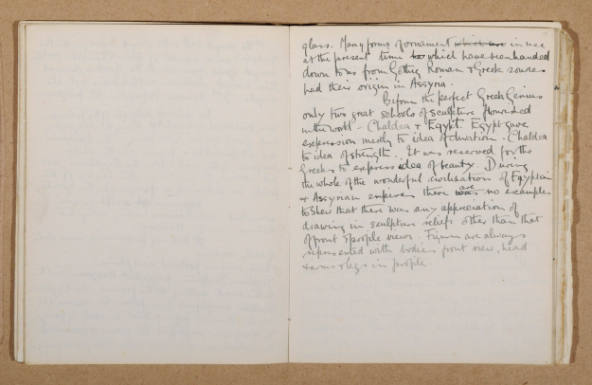 glass. Many forms of ornament which are in use
at the present time to which have been handed
down to us from Gothic Roman & Greek sources
had their origin in Assyria.
Before the perfect Greek Genius
only two great schools of sculpture flourished
in the world - Chaldea & Egypt. Egypt gave
expression mostly to idea of duration. Chaldea
to idea of strength. It was reserved for the
Greeks to express idea of beauty. During
the whole of the wonderful civilisation of Egyptian
& Assyrian empires there are no examples
to shew that there was any appreciation of
drawing in sculpture reliefs other than that
of front & profile views. Figures are always
represented with bodies front view, head
& arms & legs in profile